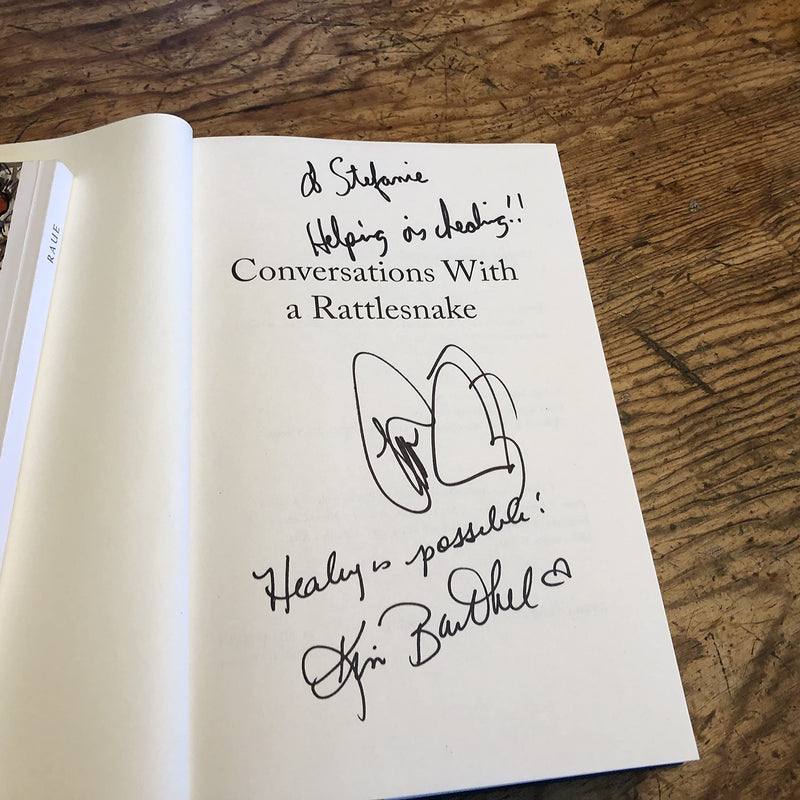 To Stefanie
Helping is healing!!
Conversations With
a Rattlesnake
Healing is possible!
Kim Barthel
RAUE